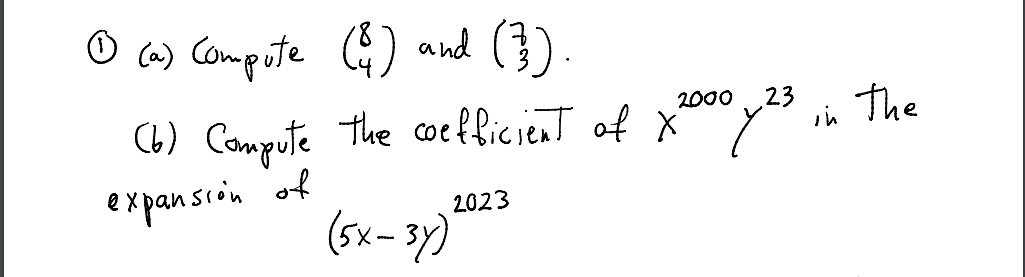 ① (a) Compute (8 4) and (7 3).
(b) Compute the coefficient of x^2000 y^23 in the
expansion of
(5x - 3y)^2023